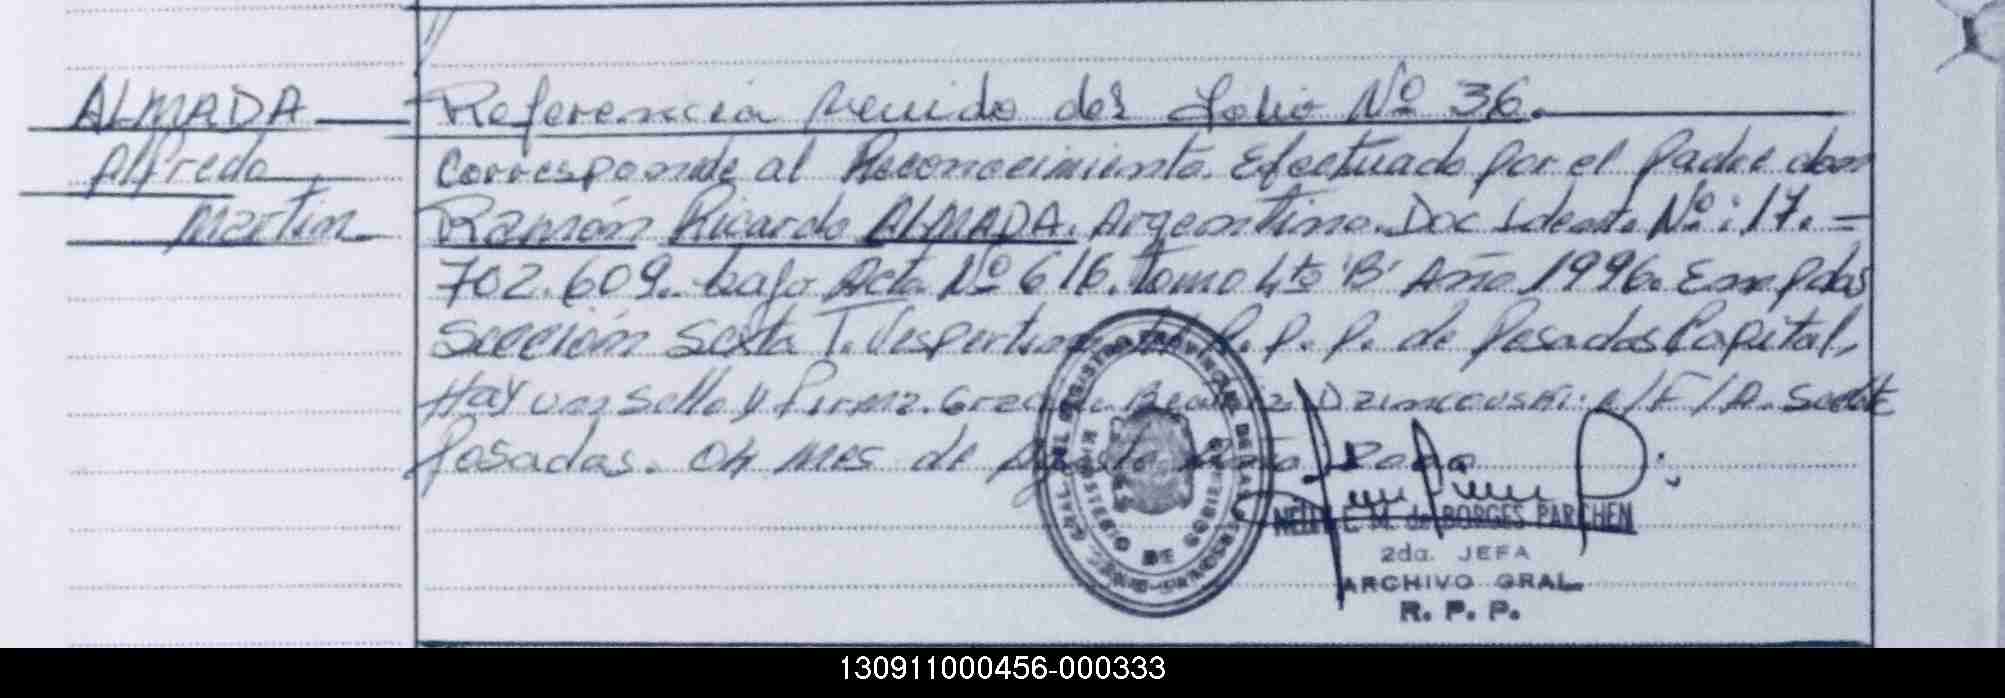 ALMADA Referencia venido del folio Nº 36.
Alfredo Corresponde al Reconocimiento. Efectuado por el padre don
Martin Ramón Ricardo ALMADA. Argentino. Doc Ident. Nº: 17.=
702.609. bajo Acta Nº 616. Tomo 4to "B" Año 1996. En Pdas
Sección Sexta T. Vespertino R.P.P. de Posadas Capital,
Hay un Sello y firma. Beatriz
Posadas. 04 mes de Agosto
REGISTRO PROVINCIAL DE LAS PERSONAS
MINISTERIO DE GOBIERNO
C. M. de BORGES PARCHEN
2da. JEFA
ARCHIVO GRAL.
R. P. P.
130911000456-000333